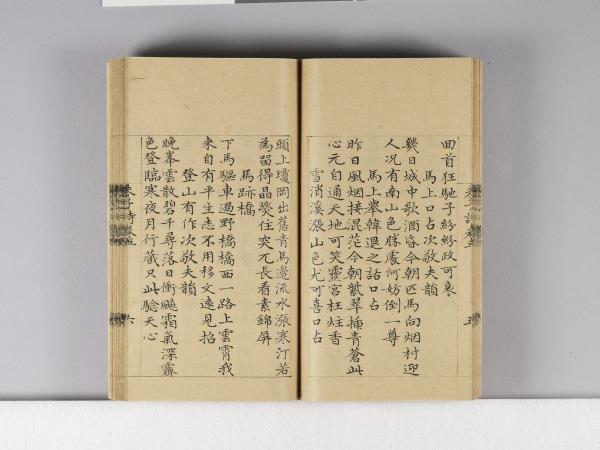 回首狂馳子紛紛政可哀
馬上口占次敬夫韻
幾日城中歌酒昏今朝匹馬向烟村迎
人况有南山色勝處何妨倒一尊
馬上舉韓退之話口占
昨日風烟接混茫今朝紫翠插青蒼此
心元自通天地可笑靈宮枉炷香
雪消溪漲山色尤可喜口占
頭上瓊岡出舊青馬邊流水漲寒汀若
為留得晶熒住突兀長看素錦屏
馬跡橋
下馬驅車過野橋橋西一路上雲霄我
来自有平生志不用移文遠見招
登山有作次敬夫韻
晚峯雲散碧千尋落日衝飇霜氣深霽
色登臨寒夜月行藏只此驗天心
五
六